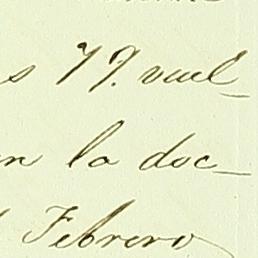 s 79. vuel_
en la doc_
Febrero